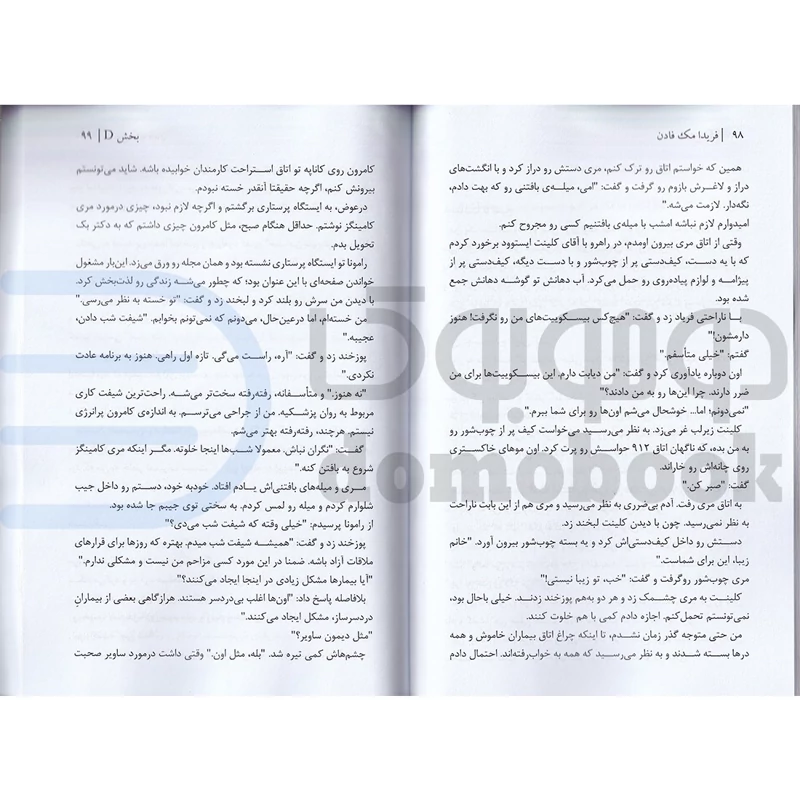 ۹۸ | فریدا مک فادن
همین که خواستم اتاق رو ترک کنم، مری دستش رو دراز کرد و با انگشت‌های
دراز و لاغرش بازوم رو گرفت و گفت: "امی، میله‌ی بافتنی که بهت دادم،
نگه‌دار. لازمت می‌شه."
امیدوارم لازم نباشه امشب با میله‌ی بافتنیم کسی رو مجروح کنم.
وقتی از اتاق مری بیرون اومدم، در راهرو با آقای کلینت ایستوود برخورد کردم
که با یه دست، کیف‌دستی پر از چوب‌شور و با دست دیگه، کیف‌دستی پر از
پیژامه و لوازم پیاده‌روی رو حمل می‌کرد. آب دهانش تو گوشه دهانش جمع
شده بود.
با ناراحتی فریاد زد و گفت: "هیچ‌کس بیسکوییت‌های من رو نگرفت! هنوز
دارمشون!"
گفتم: "خیلی متأسفم."
اون دوباره یادآوری کرد و گفت: "من دیابت دارم. این بیسکوییت‌ها برای من
ضرر دارند. چرا این‌ها رو به من دادند؟"
"نمی‌دونم؛ اما... خوشحال می‌شم اون‌ها رو برای شما ببرم."
کلینت زیرلب غر می‌زد. به نظر می‌رسید می‌خواست کیف پر از چوب‌شور رو
به من بده، که ناگهان اتاق ۹۱۲ حواسش رو پرت کرد. اون موهای خاکستری
روی چانه‌اش رو خاراند.
گفت: "صبر کن."
به اتاق مری رفت. آدم بی‌ضرری به نظر می‌رسید و مری هم از این بابت ناراحت
به نظر نمی‌رسید. چون با دیدن کلینت لبخند زد.
دستش رو داخل کیف‌دستی‌اش کرد و یه بسته چوب‌شور بیرون آورد. "خانم
زیبا، این برای شماست."
مری چوب‌شور روگرفت و گفت: "خب، تو زیبا نیستی!"
کلینت به مری چشمک زد و هر دو به‌هم پوزخند زدند. خیلی باحال بود،
نمی‌تونستم تحمل‌کنم. اجازه دادم کمی با هم خلوت کنند.
من حتی متوجه گذر زمان نشدم، تا اینکه چراغ اتاق بیماران خاموش و همه
درها بسته شدند و به نظر می‌رسید که همه به خواب‌رفته‌اند. احتمال دادم
بخش D | ۹۹
کامرون روی کاناپه تو اتاق استراحت کارمندان خوابیده باشه. شاید می‌تونستم
بیرونش کنم، اگرچه حقیقتا آنقدر خسته نبودم.
درعوض، به ایستگاه پرستاری برگشتم و اگرچه لازم نبود، چیزی درمورد مری
کامینگز نوشتم. حداقل هنگام صبح، مثل کامرون چیزی داشتم که به دکتر بک
تحویل بدم.
رامونا تو ایستگاه پرستاری نشسته بود و همان مجله رو ورق می‌زد. این‌بار مشغول
خواندن صفحه‌ای با این عنوان بود؛ که چطور می‌شه زندگی رو لذت‌بخش کرد.
با دیدن من سرش رو بلند کرد و لبخند زد و گفت: "تو خسته به نظر می‌رسی."
من خسته‌ام، اما درعین‌حال، می‌دونم که نمی‌تونم بخوابم. "شیفت شب دادن،
عجیبه."
پوزخند زد و گفت: "آره، راست می‌گی. تازه اول راهی. هنوز به برنامه عادت
نکردی."
"نه هنوز." و متأسفانه، رفته‌رفته سخت‌تر می‌شه. راحت‌ترین شیفت کاری
مربوط به روان پزشکیه. من از جراحی می‌ترسم. به اندازه‌ی کامرون پرانرژی
نیستم. هرچند، رفته‌رفته بهتر می‌شم.
گفت: "نگران نباش. معمولا شب‌ها اینجا خلوته. مگر اینکه مری کامینگز
شروع به بافتن کنه."
مری و میله‌های بافتنی‌اش یادم افتاد. خودبه خود، دستم رو داخل جیب
شلوارم کردم و میله رو لمس کردم. به سختی توی جیبم جا شده بود.
از رامونا پرسیدم: "خیلی وقته که شیفت شب می‌دی؟"
پوزخند زد و گفت: "همیشه شیفت شب میدم. بهتره که روزها برای قرارهای
ملاقات آزاد باشه. ضمنا در این مورد کسی مزاحم من نیست و مشکلی ندارم."
"آیا بیمارها مشکل زیادی در اینجا ایجاد می‌کنند؟"
بلافاصله پاسخ داد: "اون‌ها اغلب بی‌دردسر هستند. هرازگاهی بعضی از بیمارانِ
دردسرساز، مشکل ایجاد می‌کنند."
"مثل دیمون ساویر؟"
چشم‌هاش کمی تیره شد. "بله، مثل اون." وقتی داشت درمورد ساویر صحبت
domobook